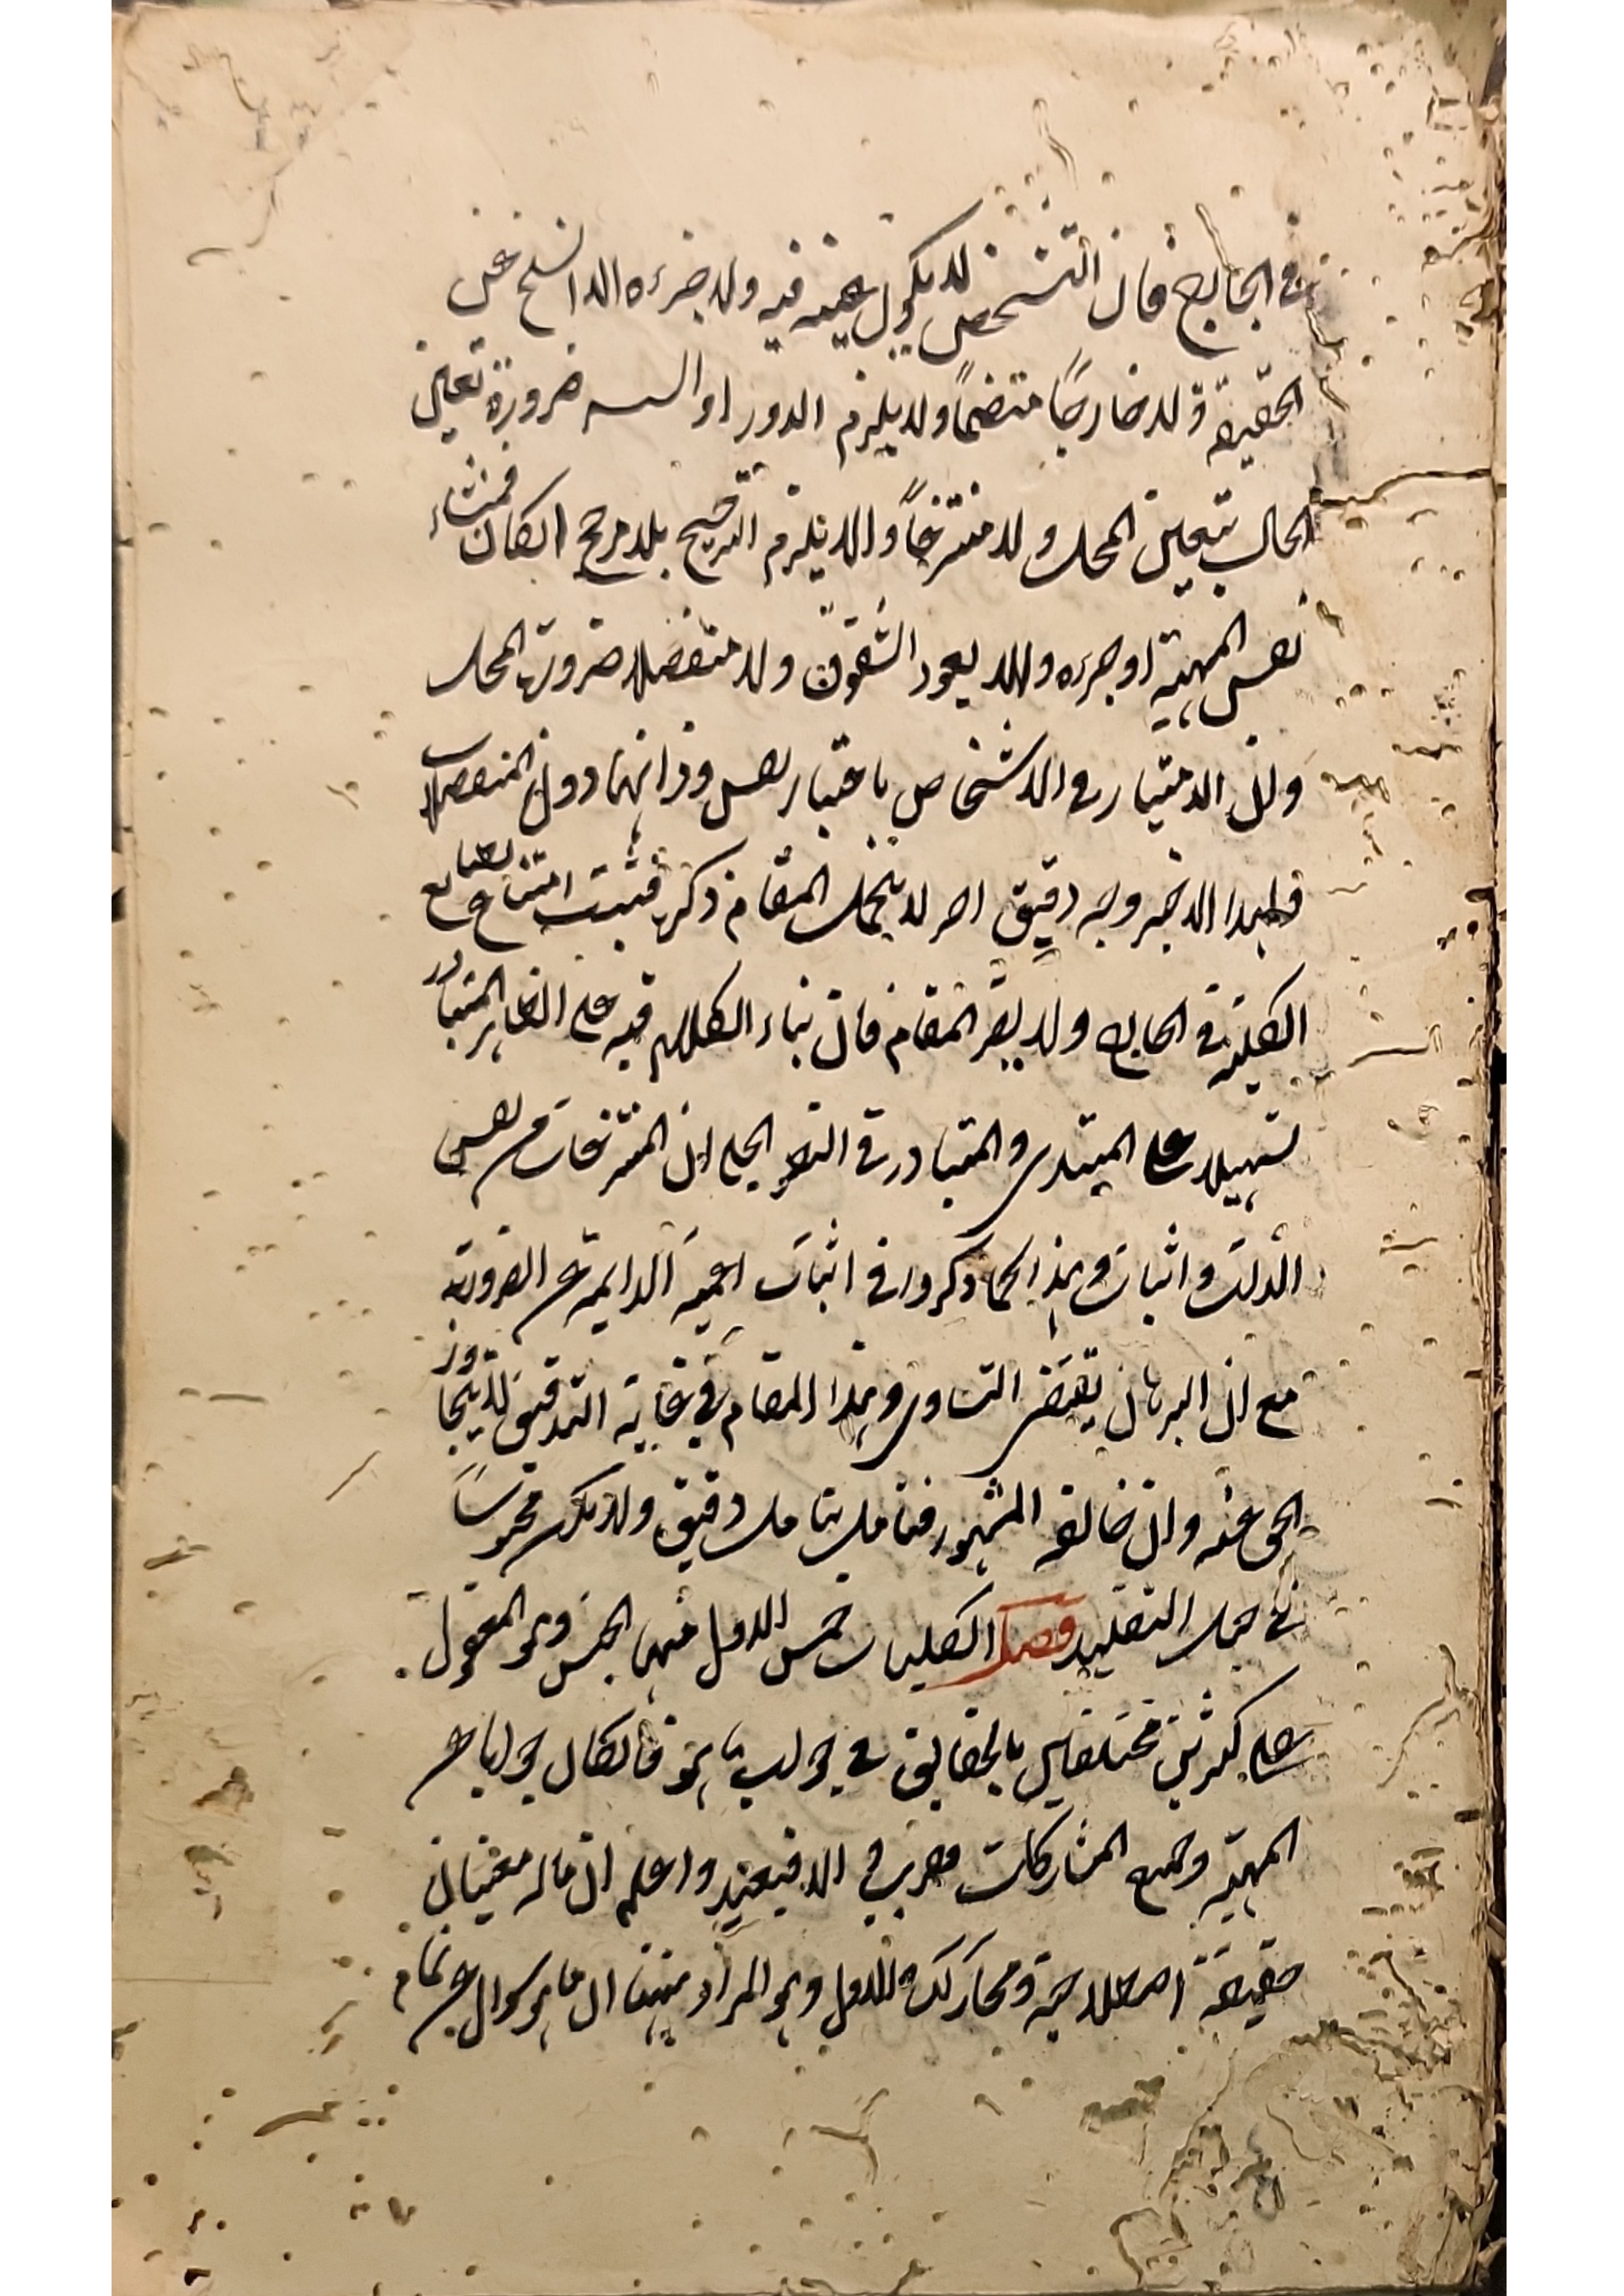 في الخارج فان التشخص لا يكون عينه فيه ولا جزءه والا انسلخ عن
الحقيقة ولا خارجًا منضمًا ولا يلزم الدور او التسـ ضرورة تعين
الحال بتعين المحل ولا منتزعًا والا يلزم الترجيح بلا مرجح انكان فمنشاء
نفس المهية او جزءه والا يعود الشقوق ولا منفصلا ضرورة المحل
وان الامتياز في الاشخاص باعتبار نفس وذاتها دون المنفصلات
فلهذا الاخير وجه دقيق اخر لا يتحمل المقام ذكره فثبت امتناع
الكلية في الخارج ولا يضر المقام فان بناء الكلام فيه على الظاهر المتبادر
تسهيلا على المبتدى والمتبادر في النظر الجلى ان المنتزعات من نفس
الذات واثبات وهذا كما ذكروا في اثبات اعمية الدايمة من الضرورية
مع ان البرهان يقتضى التساوى وهذا المقام في غاية التدقيق لا يتجاوز
الحق عنه وان خالفه المشهور فتامل بتامل دقيق ولا تكن محبوسًا
في حبل التقليد فصل الكليات خمس الاول منها الجنس وهو المقول
على كثرين مختلفين بالحقايق في جواب ما هو فانكان جوابا عن
المهية وجميع المشاركات فقريب والا فبعيد واعلم ان ما له معنيان
حقيقة اصطلاحية ومجازية والاول وهو المراد ههنا ان ما هو سوال عن تمام